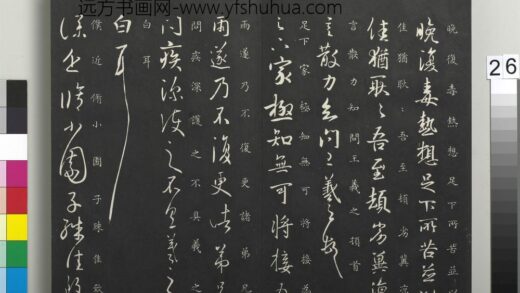 远方书画网-www.yfshuhua.com
26
晚復毒熱想足下所苦並以
晚復毒熱想足下所苦並
佳猶耿耿吾至頓劣冀涼
佳猶耿耿吾至頓劣冀涼
言散力知問王羲之頓首
言散力知問王羲之頓首
足下家極知無可將接為
足下家極知無可將接為
雨遂乃不復更諸弟兄
雨遂乃不復更諸弟兄
問疾深護之不具羲之
問疾深護之不具羲之
白耳
白耳
僕近修小園子殊佳致
僕近修小園子殊佳致